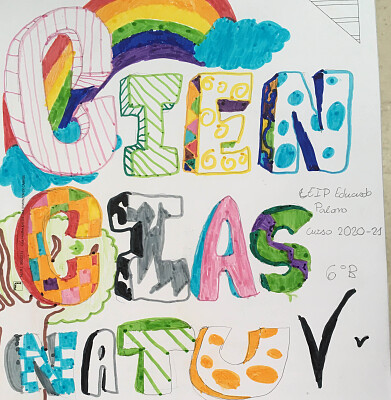 CIEN
CIAS
CEIP Eduardo
Curso 2020-21
6ºB
NATU V v